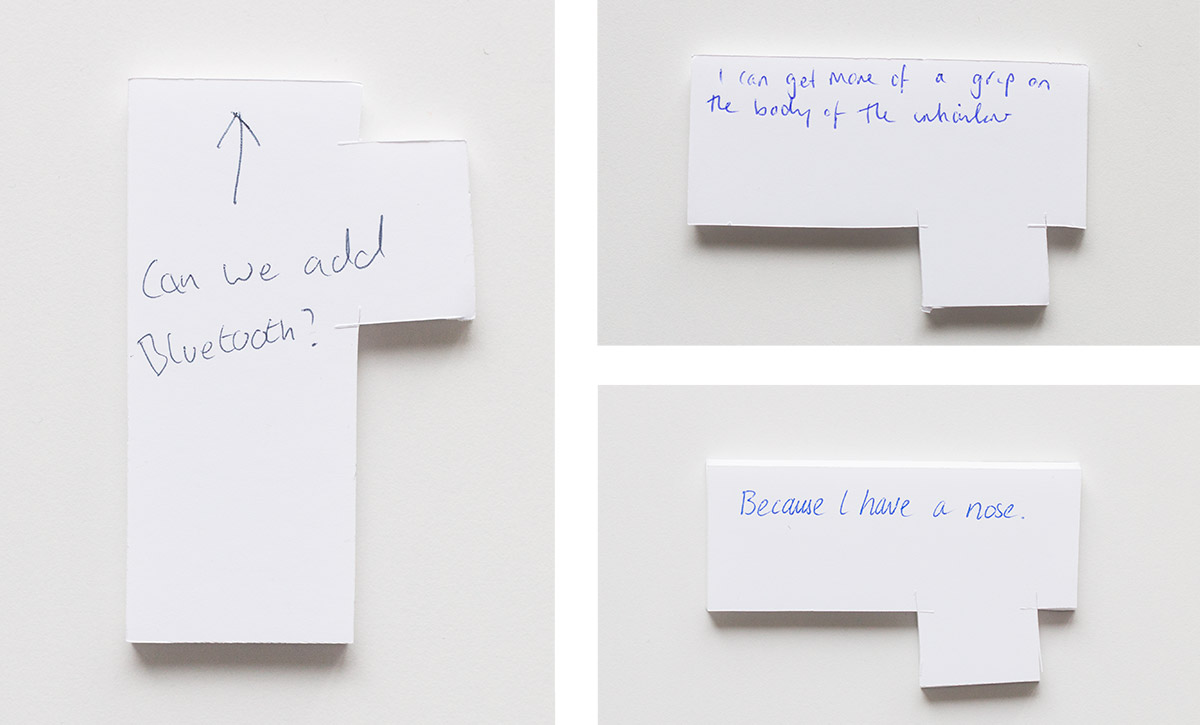 Can we add
Bluetooth?
I can get more of a grip on
the body of the
Because I have a nose.